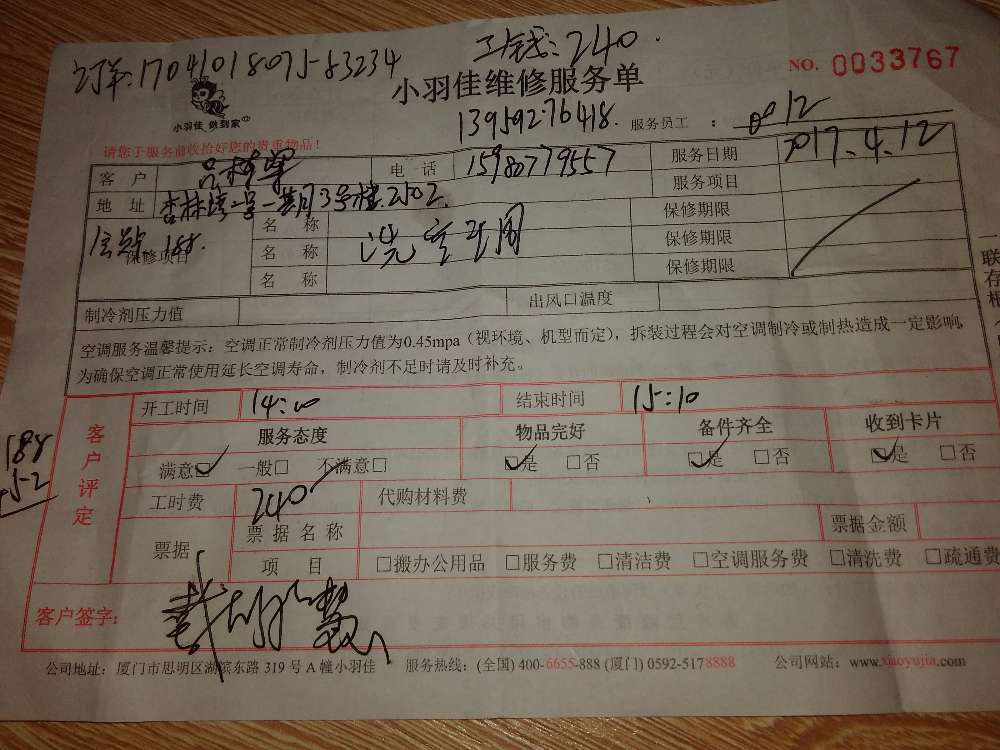 订单:17041018075-83234 工钱:240.
小羽佳 做到家
小羽佳维修服务单
NO. 0033767
13959276418. 服务员工 : 12
请您于服务前收拾好您的贵重物品!
客 户 电 话 15980779557 服务日期 2017.4.12
地 址 杏林 号一期3号楼2502. 服务项目
188.
保修项目
名 称 洗空 保修期限
名 称 保修期限
名 称 保修期限
制冷剂压力值 出风口温度
空调服务温馨提示:空调正常制冷剂压力值为0.45mpa(视环境、机型而定),拆装过程会对空调制冷或制热造成一定影响,
为确保空调正常使用延长空调寿命,制冷剂不足时请及时补充。
一联存根
客户评定
开工时间 14:00 结束时间 15:10
服务态度 物品完好 备件齐全 收到卡片
满意☑ 一般□ 不满意□ ☑是 □否 ☑是 □否 ☑是 □否
188
52
工时费 240 代购材料费
票据 票据名称 票据金额
项 目 □搬办公用品 □服务费 □清洁费 □空调服务费 □清洗费 □疏通费
客户签字:
公司地址:厦门市思明区湖滨东路 319 号 A 幢小羽佳 服务热线:(全国) 400-6655-888 (厦门) 0592-5178888 公司网站:www.xiaoyujia.com